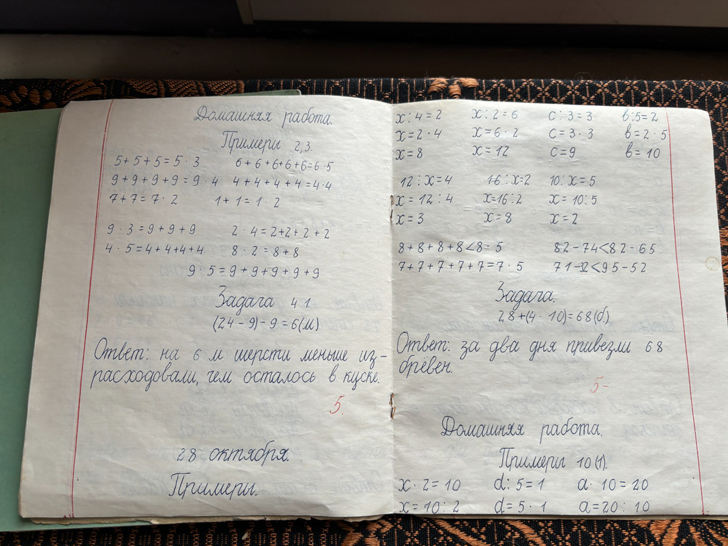 Домашняя работа.
Примеры 2,3.
5+5+5=5·3 6+6+6+6+6=6·5
9+9+9+9=9·4 4+4+4+4=4·4
7+7=7·2 1+1=1·2
9·3=9+9+9 2·4=2+2+2+2
4·5=4+4+4+4 8·2=8+8
9·5=9+9+9+9+9
Задача 41.
(24-9)-9=6(м)
Ответ: на 6 м шерсти меньше из-
расходовали, чем осталось в куске.
5.
28 октября.
Примеры.
x:4=2 x:2=6 c:3=3 в:5=2
x=2·4 x=6·2 c=3·3 в=2·5
x=8 x=12 c=9 в=10
12:x=4 16:x=2 10:x=5
x=12:4 x=16:2 x=10:5
x=3 x=8 x=2
8+8+8+8<8·5 82-74<82-65
7+7+7+7+7=7·5 71-32<95-52
Задача.
28+(4·10)=68(б)
Ответ: за два дня привезли 68
брёвен.
5-
Домашняя работа.
Примеры 10(1).
x·2=10 d:5=1 a·10=20
x=10:2 d=5·1 a=20:10